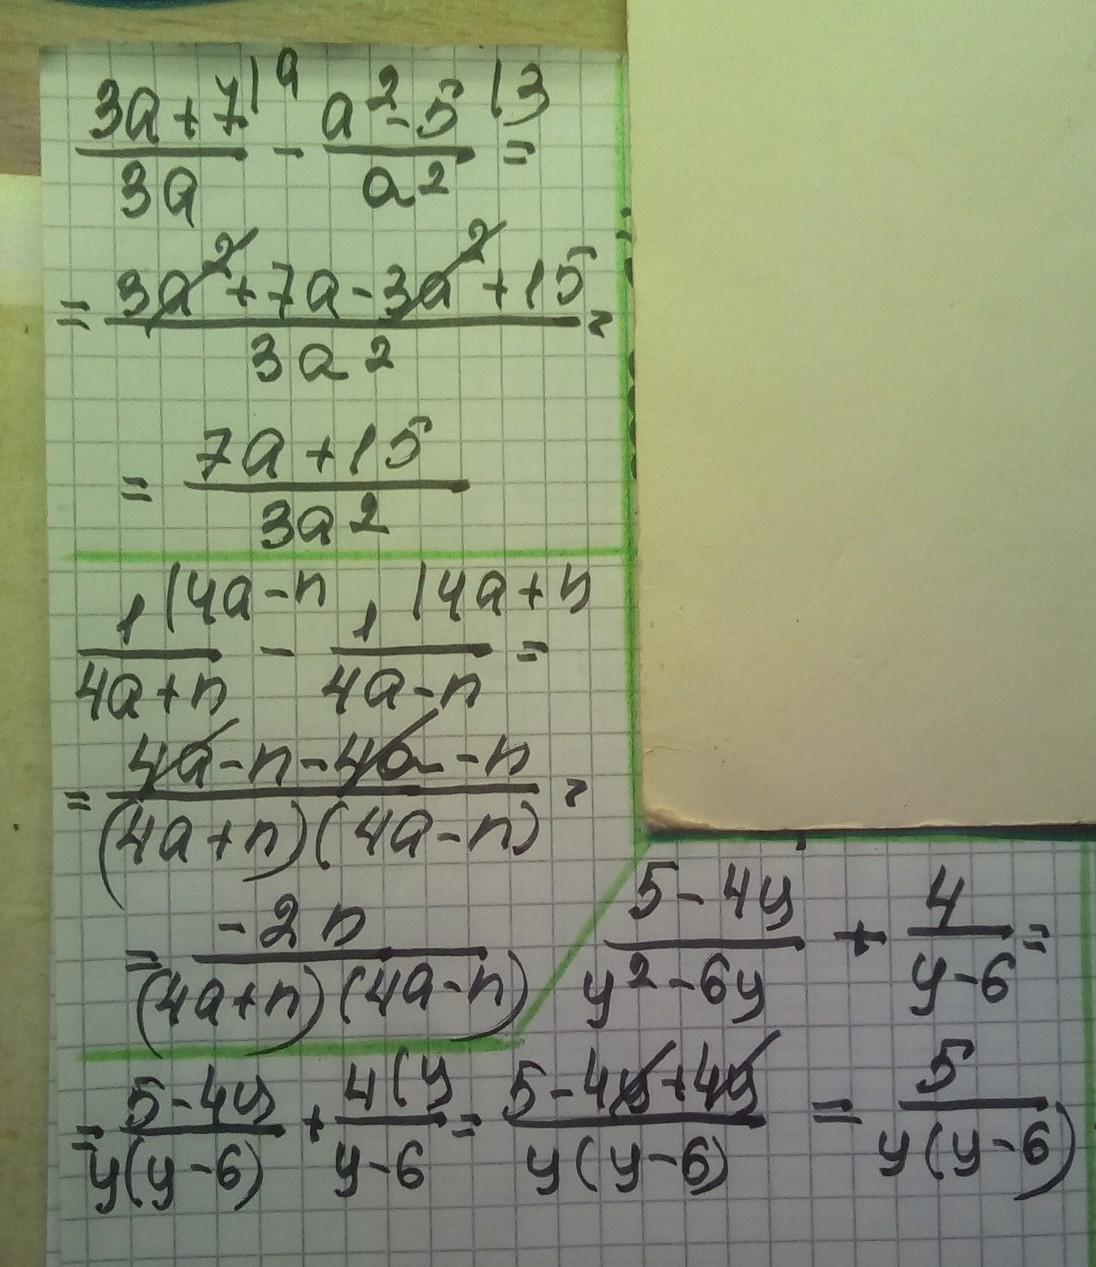 3a+7⁽ᵃ / 3a - a²-5⁽³ / a² =
= 3a²+7a-3a²+15 / 3a² =
= 7a+15 / 3a²
1⁽4a-n / 4a+n - 1⁽4a+n / 4a-n =
= 4a-n-4a-n / (4a+n)(4a-n) =
= -2n / (4a+n)(4a-n)
5-4y / y²-6y + 4 / y-6 =
= 5-4y / y(y-6) + 4⁽y / y-6 = 5-4y+4y / y(y-6) = 5 / y(y-6)